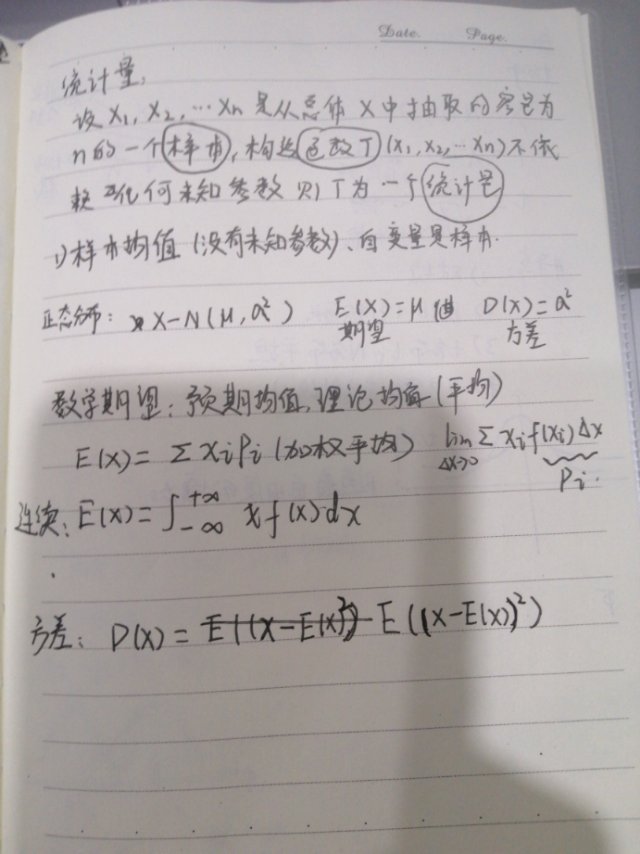 Date. Page.
统计量,
设 X₁, X₂, …Xn 是从总体 X 中抽取的容量为
n 的一个样本, 构造函数T (x₁, x₂, …xn) 不依
赖任何未知参数 则 T 为一个统计量
1) 样本均值 (没有未知参数)、自变量是样本.
正态分布: X–N(μ, σ²) E(X)=μ D(X)=σ²
期望 方差
数学期望: 预期均值, 理论均值 (平均)
E(X)= Σ xᵢPᵢ (加权平均) lim Σ xᵢf(xᵢ)Δx
Δx→0
Pᵢ.
连续: E(X)= ∫₋∞⁺∞ x f(x)dx
方差: D(X) = E((X–E(X)²)) E((X–E(X))²)